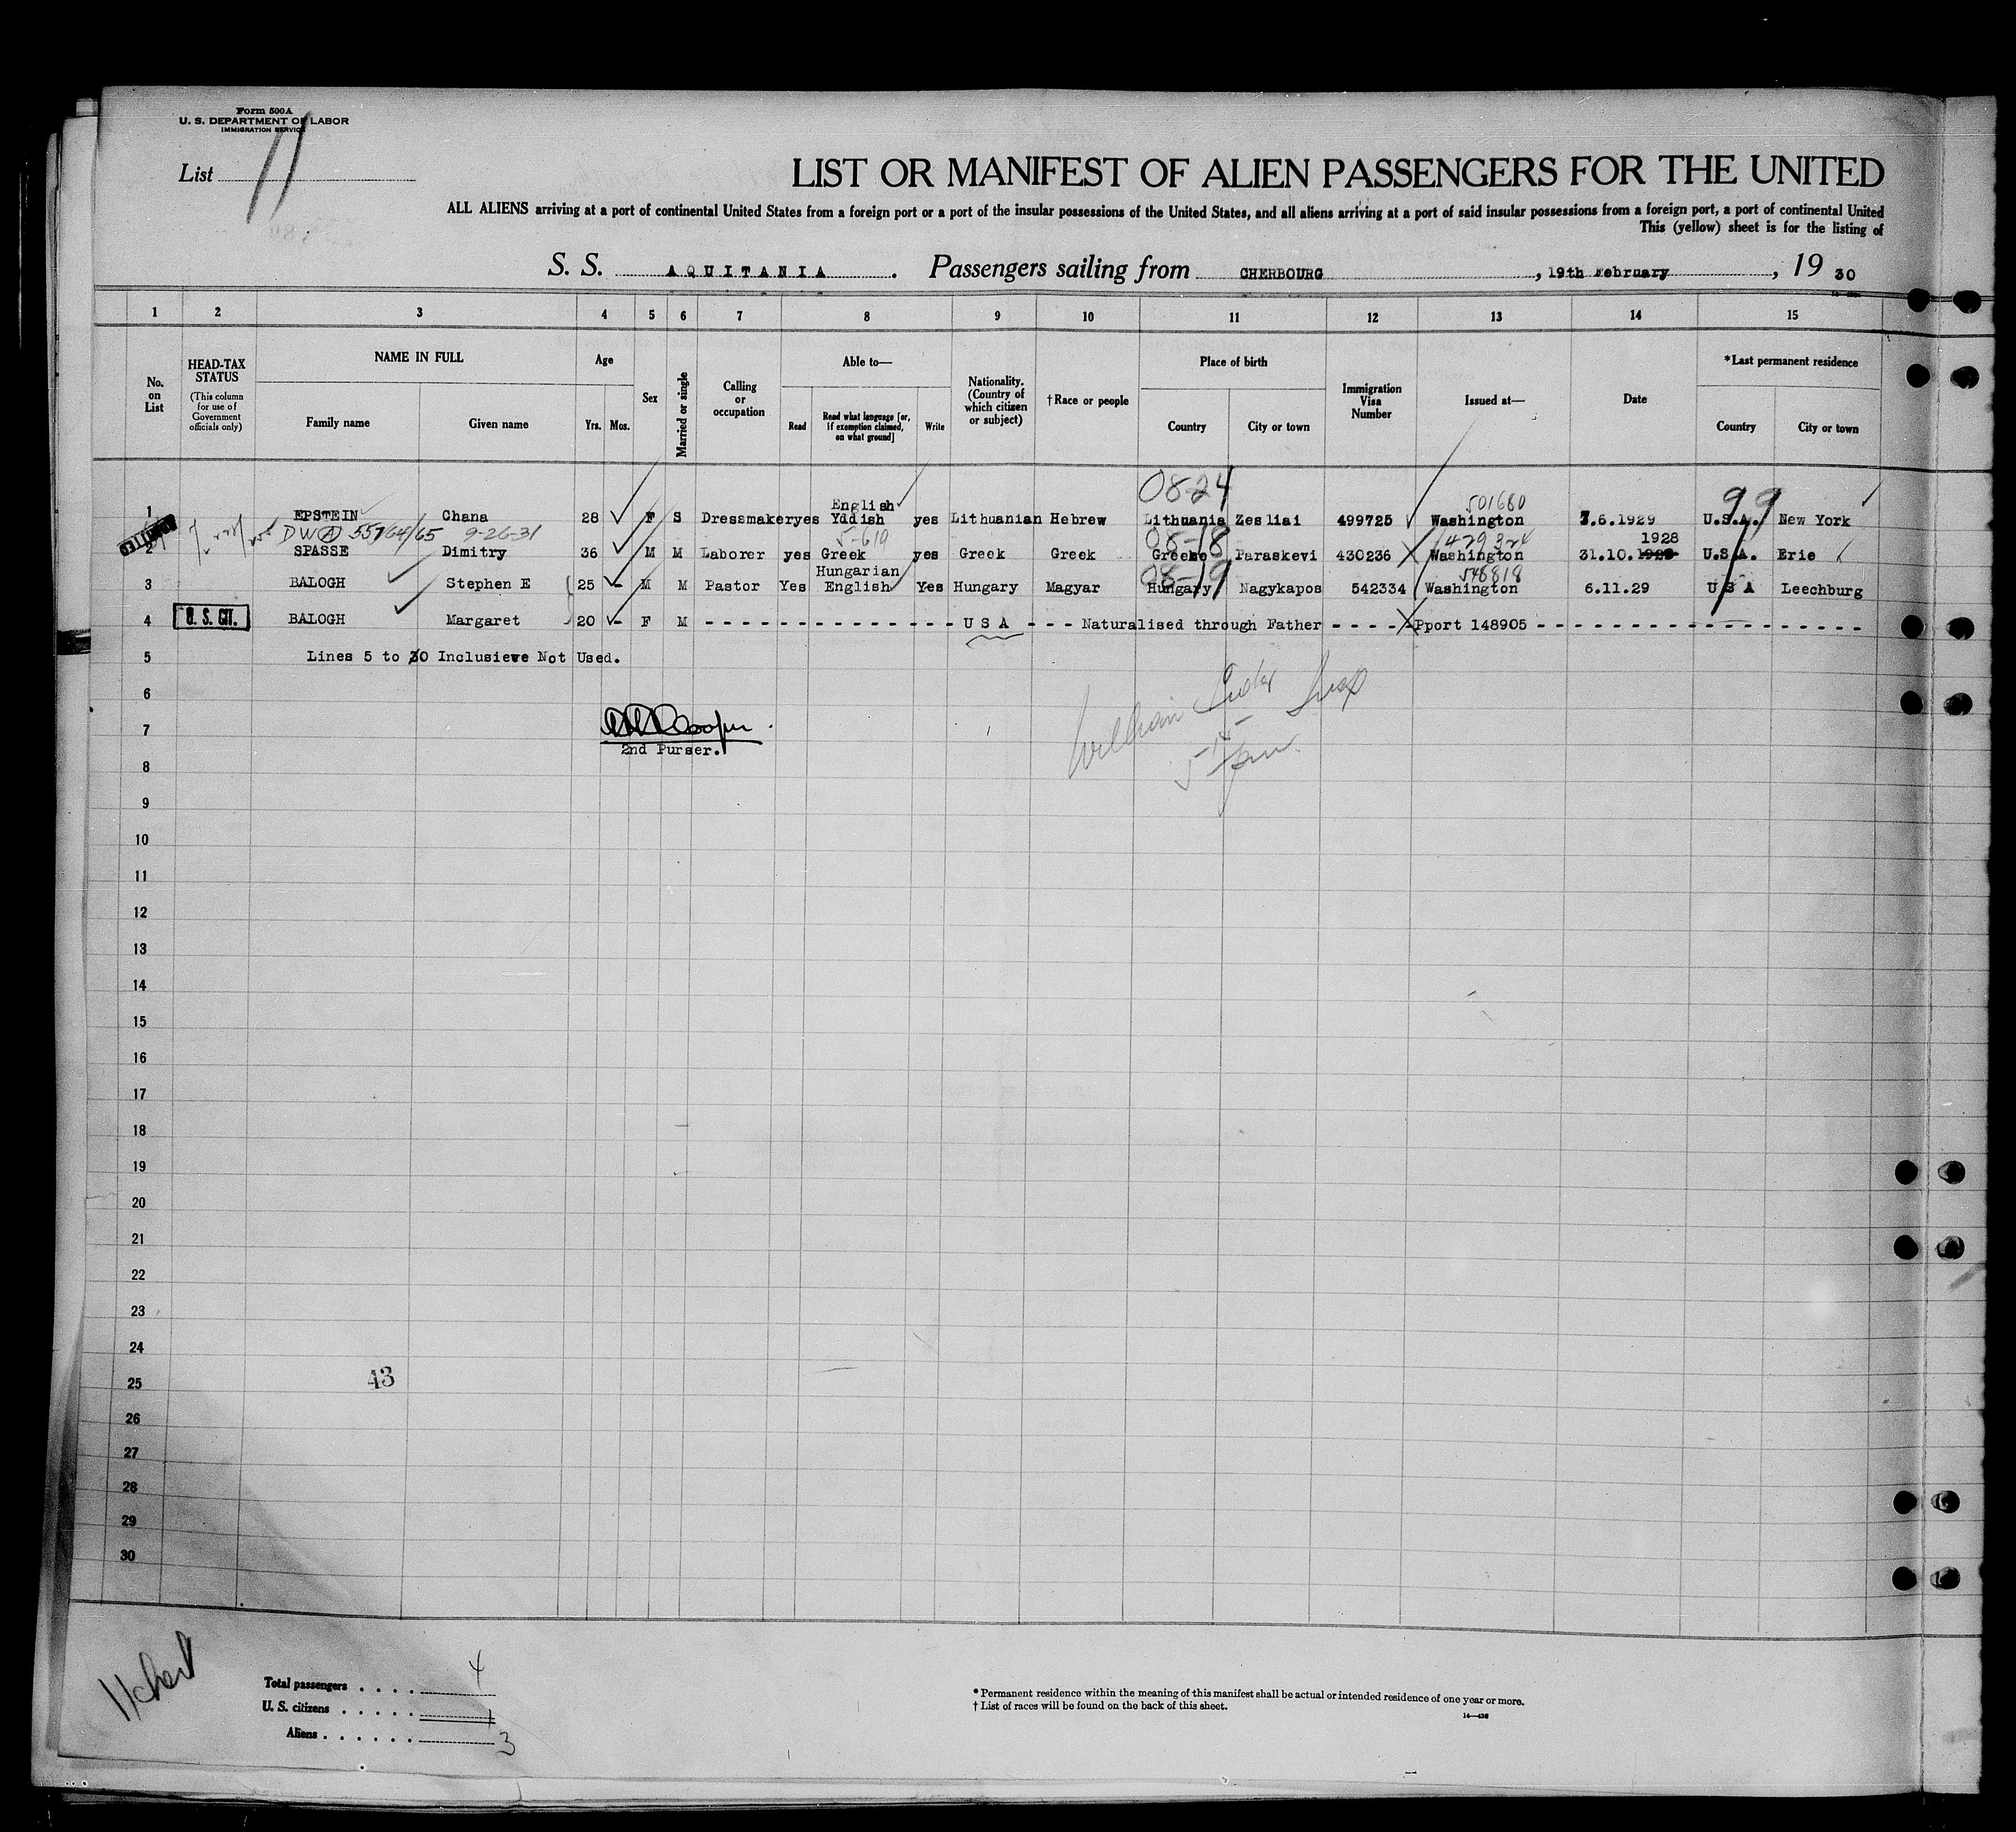 Form 500A
U. S. DEPARTMENT OF LABOR
IMMIGRATION SERVICE
List 11
LIST OR MANIFEST OF ALIEN PASSENGERS FOR THE UNITED
ALL ALIENS arriving at a port of continental United States from a foreign port or a port of the insular possessions of the United States, and all aliens arriving at a port of said insular possessions from a foreign port, a port of continental United
This (yellow) sheet is for the listing of
S. S. AQUITANIA . Passengers sailing from CHERBOURG , 19th February , 19 30
1 2 3 4 5 6 7 8 9 10 11 12 13 14 15
No. on List
HEAD-TAX STATUS
(This column for use of Government officials only)
NAME IN FULL
Family name
Given name
Age
Yrs.
Mos.
Sex
Married or single
Calling or occupation
Able to—
Read
Read what language [or, if exemption claimed, on what ground]
Write
Nationality. (Country of which citizen or subject)
†Race or people
Place of birth
Country
City or town
Immigration Visa Number
Issued at—
Date
*Last permanent residence
Country
City or town
08-24
English 501680 99
1 EPSTEIN Chana 28 F S Dressmaker yes Yddish yes Lithuanian Hebrew Lithuania Zesliai 499725 Washington 7.6.1929 U.S.A. New York
DW A 55764/65 9-26-31 5-619 08-18 479324 1928
2 SPASSE Dimitry 36 M M Laborer yes Greek yes Greek Greek Greeke Paraskevi 430236 Washington 31.10.1929 U.S.A. Erie
Hungarian 08-19 548818
3 BALOGH Stephen E 25 - M M Pastor Yes English Yes Hungary Magyar Hungary Nagykapos 542334 Washington 6.11.29 U S A Leechburg
4 U. S. CIT. BALOGH Margaret 20 - F M - - - - - - - - - - - - - - U S A - - - Naturalised through Father - - - - - Pport 148905 - - - - - - - - - - - - - - - - - - -
5 Lines 5 to 30 Inclusieve Not Used.
6
William
7
2nd Purser.
8
9
10
11
12
13
14
15
16
17
18
19
20
21
22
23
24
43
25
26
27
28
29
30
Total passengers . . . . 4
U. S. citizens . . . . . 1
Aliens . . . . . . 3
* Permanent residence within the meaning of this manifest shall be actual or intended residence of one year or more.
† List of races will be found on the back of this sheet.
14—430